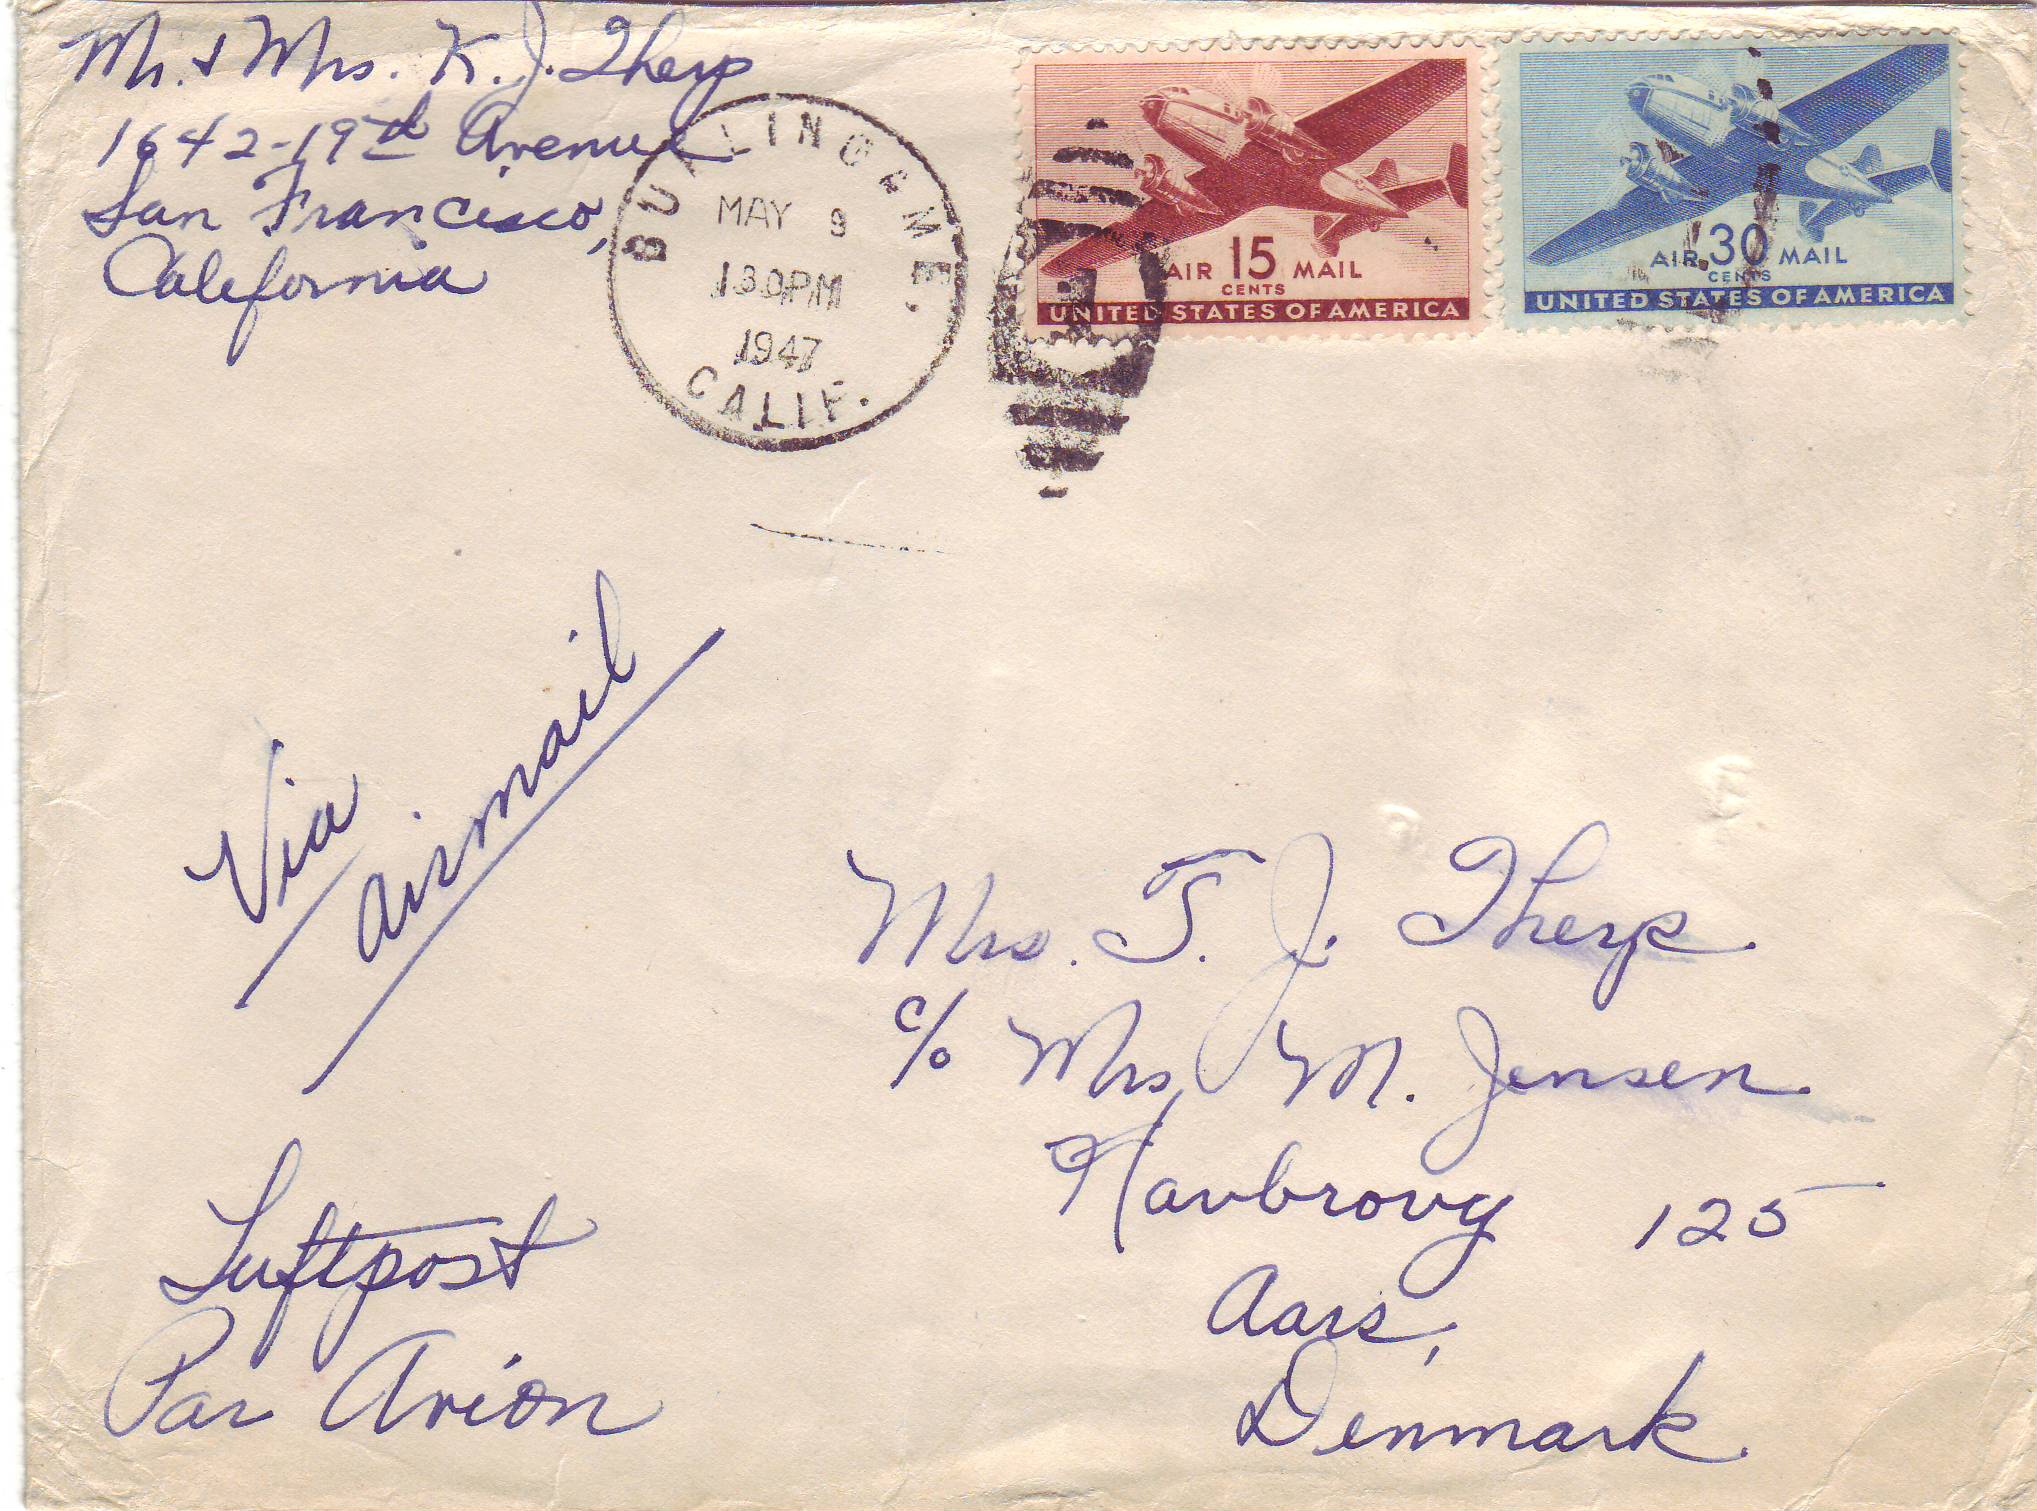 Mr. & Mrs. K. J. Therp
1642-19th Avenue
San Francisco,
California
BURLINGAME,
MAY 9
130PM
1947
CALIF.
AIR 15 MAIL
CENTS
UNITED STATES OF AMERICA
AIR 30 MAIL
CENTS
UNITED STATES OF AMERICA
Via
Airmail
Mrs. T. J. Therp.
c/o Mrs M. Jensen.
Havbrovy 125
Aars,
Denmark.
Luftpost
Par Avion